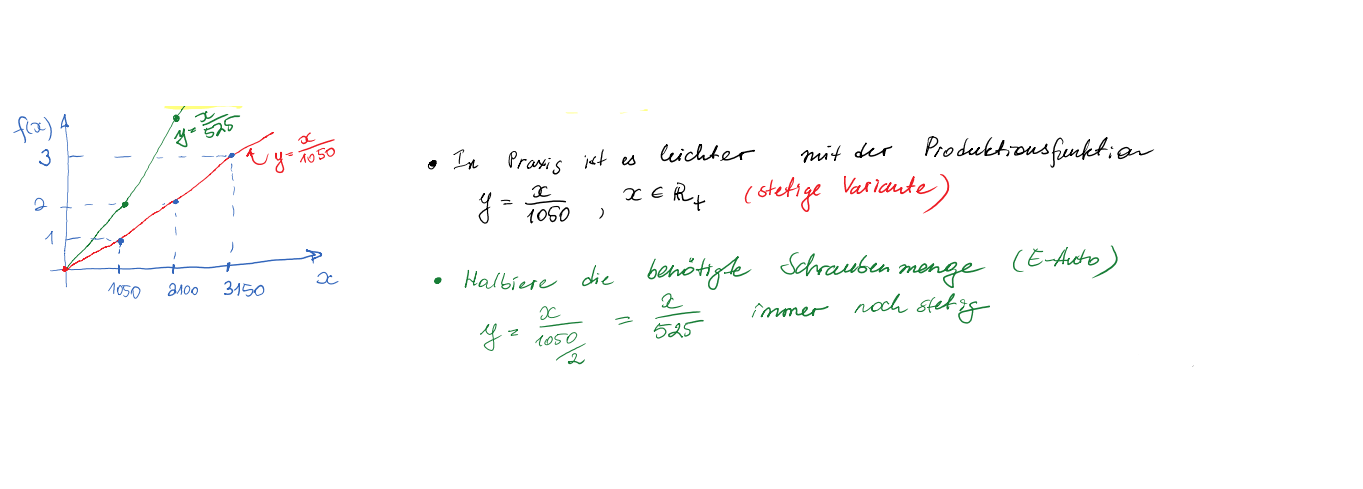 f(x)
y = x/525
3
y = x/1050
2
1
1050 2100 3150 x
• In Praxis ist es leichter mit der Produktionsfunktion
y = x/1050 , x ∈ ℝ₊ (stetige Variante)
• Halbiere die benötigte Schraubenmenge (E-Auto)
y = x/(1050/2) = x/525 immer noch stetig